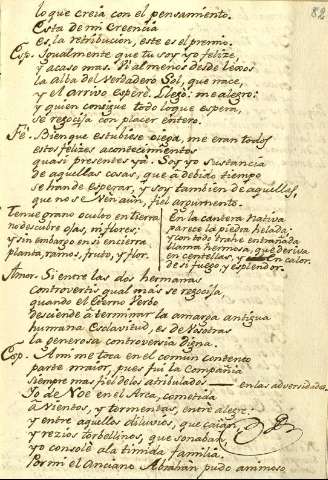 82
lo que creia con el pensamiento.
Esta de mi creencia
es la retribucion, este es el premio.
Esp. Igualmente que tu soy yo felize,
y acaso mas. Vi almenos desde lexos
la alba del Verdadero Sol, que nace,
y el arrivo esperè. Llegò: me alegro:
y quien consigue todo loque espera,
se regocija con placer entero.
Fè. Bien que estubiese ciega, me eran todos
estos felizes acontecimientos
quasi presentes yà. Soy yo sustancia
de aquellas cosas, que à debido tiempo
se han de esperar, y soy tambien de aquellas,
que no se ven aùn, fiel argumento.
Tenue grano oculto en tierra
no descubre ojas, ni flores;
y sin embargo en si encierra
planta, ramos, fruto, y flor.
En la cantera nativa
parece la piedra helada;
y con todo trahe entrañada
llama hermosa, que deriva
en centellas, y en calor.
de si fuego y esplendor.
Amor. Si entre las dos hermanas
controvertis qual mas se regocija,
quando el Eterno Verbo
desciende à terminar la amarga antigua
humana Esclavitud, es de Nosotras
la generosa controversia digna.
Esp. A mi me toca en el comun contento
parte maior, pues fui la Compañia
siempre mas fiel de los atribulados — en las adversidades
Yo de Noè en el Arca, cometida
à vientos, y tormentas, entre alegre,
y entre aquellos diluvios, que caian,
y rezios torbellinos, que sonaban,
yo consolè ala timida familia.
Por mi el Anciano Abrahàn pudo animoso